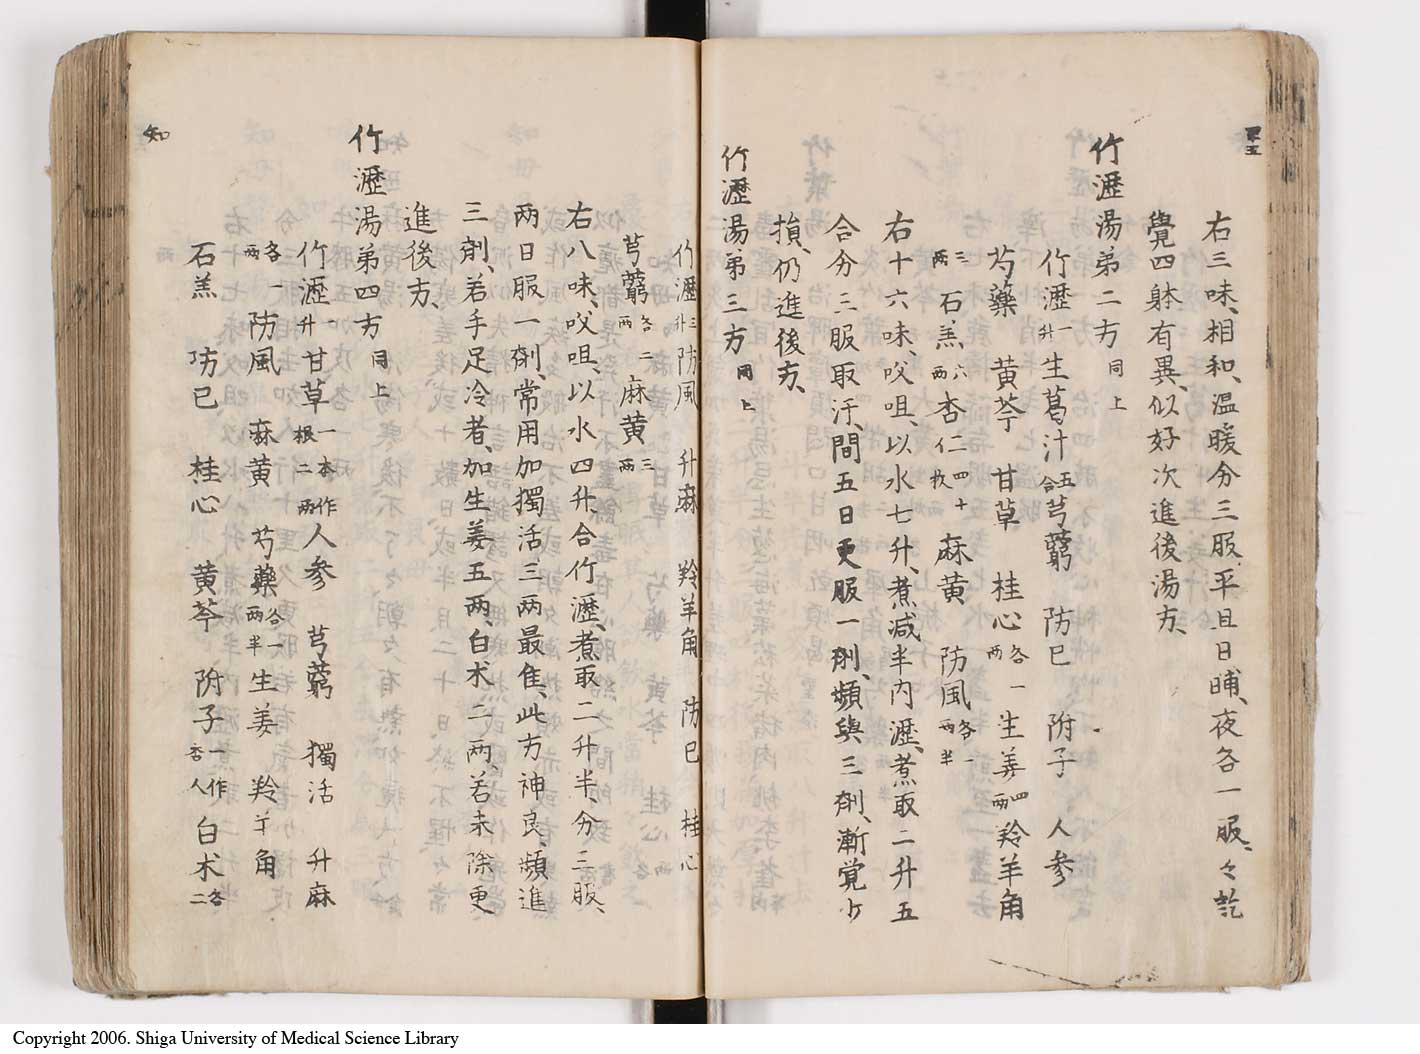 右三味、相和、温暖分三服、平旦日晡、夜各一服、々訖
覺四躰有異、似好次進後湯方、
竹瀝湯第二方 同上
竹瀝一升生葛汁五合芎藭 防已 附子 人参
芍藥 黄芩 甘草 桂心各一両生姜四両羚羊角
三両石羔六両杏仁四十枚麻黄 防風各一両半
右十六味、㕮咀、以水七升、煮减半内瀝、煮取二升五
合分三服取汗、間五日更服一剤、頻與三剤、漸覚少
損、仍進後方、
竹瀝湯第三方 同上
竹瀝三升防風 升麻 羚羊角 防已 桂心
芎藭各二両麻黄三両
右八味、㕮咀、以水四升、合竹瀝、煮取二升半、分三服、
両日服一剤、常用加獨活三両最隹、此方神良、頻進
三剤、若手足冷者、加生姜五両、白术二両、若未除更
進後方、
竹瀝湯第四方 同上
竹瀝一升甘草一本作根二両人参 芎藭 獨活 升麻
各一両防風 麻黄 芍藥各一両半生姜 羚羊角
石羔 防已 桂心 黄芩 附子一作杏人白术各二
知
Copyright 2006. Shiga University of Medical Science Library